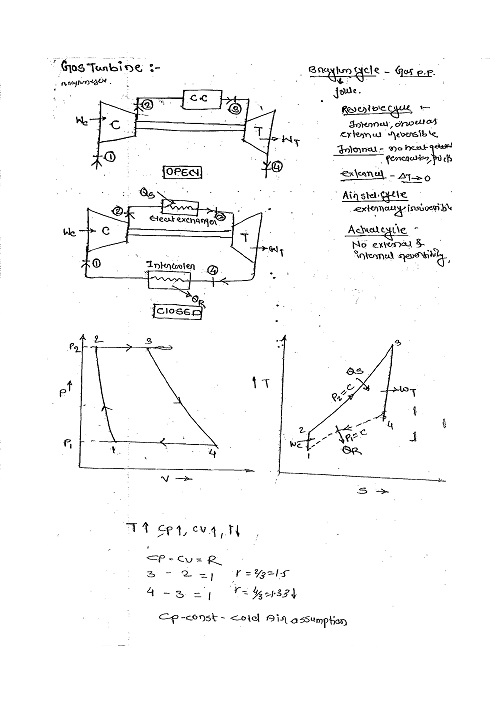 Gas Turbine :-
Brayton cycle - Gas p.p.
Joule.
C.C
②
③
Wc
C
T
WT
①
④
OPEN
Reversible cycle -
Internal, as well as
external reversible
Internal - no heat
External - ΔT→0
Air std. cycle
externally irreversible
Actual cycle -
No external &
internal reversibility.
QS
②
③
Heat exchanger
Wc
C
T
WT
①
Intercooler
④
QR
CLOSED
P2
2
3
P↑
P1
1
4
V →
↑T
3
QS
P2=C
WT
2
4
Wc
P1=C
1
QR
S →
T↑ Cp↑, Cv↑, r↓
Cp - Cv = R
3 - 2 = 1 r = 3/2 = 1.5
4 - 3 = 1 r = 4/3 = 1.33↓
Cp-const - Cold Air assumption